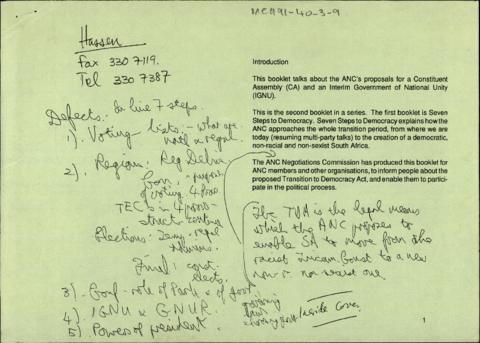 MCH91-40-3-9
Hassen
Fax 330 7119.
Tel 330 7387
Defects. In line 7 steps.
1). Voting lists - what are
natl & regnl.
2). Regions. Reg Delim
for purposes
of voting
TECs in
Elections:
Final: const.
elects.
3). Conf - role of Parl & of govt
4). IGNU & GNUR.
5). Power of president.
Introduction
This booklet talks about the ANC's proposals for a Constituent
Assembly (CA) and an Interim Government of National Unity
(IGNU).
This is the second booklet in a series. The first booklet is Seven
Steps to Democracy. Seven Steps to Democracy explains how the
ANC approaches the whole transition period, from where we are
today (resuming multi-party talks) to the creation of a democratic,
non-racial and non-sexist South Africa.
The ANC Negotiations Commission has produced this booklet for
ANC members and other organisations, to inform people about the
proposed Transition to Democracy Act, and enable them to partici-
pate in the political process.
The TDA is the legal means
which the ANC proposes to
enable SA to move from the
racist tricam const to a new
non-r non sexist one
Inside Cover
1